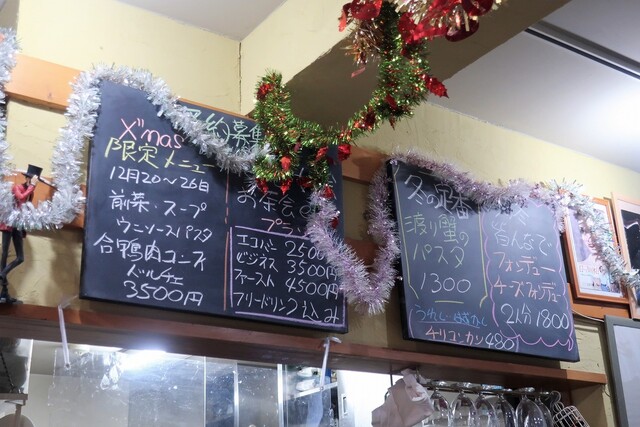 X'mas
限定メニュー
12月20～26日
前菜・スープ
ウニソースパスタ
合鴨肉コンフィ
ドルチェ
3500円
予約募集
お茶会
プラン
エコノミー 2500円
ビジネス 3500円
ファースト 4500円
フリードリンク込み
冬の定番
渡り蟹の
パスタ
1300
皆んなで
フォンデュー
チーズフォンデュ
2人分 1800
チリコンカン 480